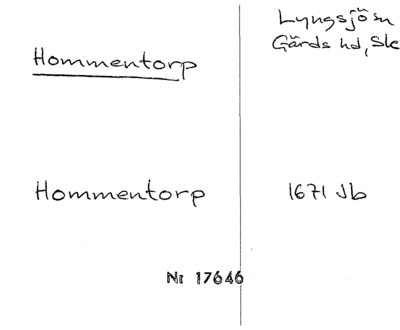 Hommentorp
Lyngsjö sn
Gärds hd, Sk
Hommentorp
1671 Jb
Nr 17646